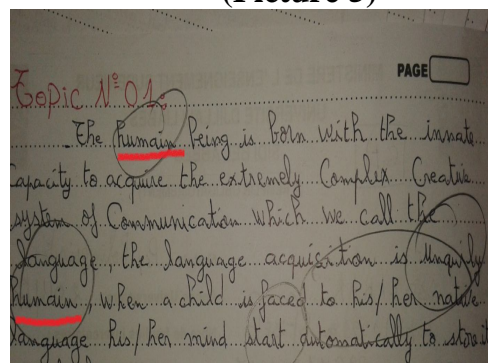 (Picture 3)
PAGE
Topic N° 01:
The humain being is born with the innate
capacity to acquire the extremely Complex Creative
system of Communication which we call the
language, the language acquisition is uniquily
humain. when a child is faced to his/her native
language his/her mind start automatically to store it